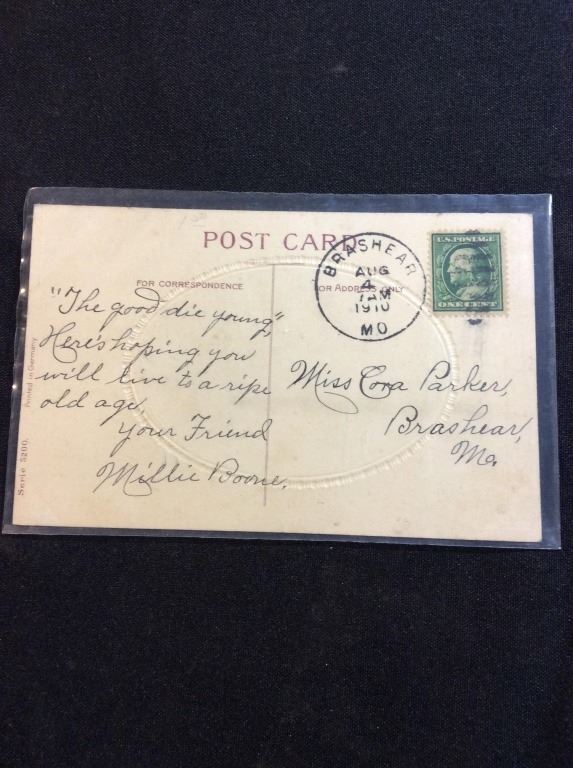 POST CARD
FOR CORRESPONDENCE
FOR ADDRESS ONLY
BRASHEAR
AUG
4
7AM
1910
MO
U.S. POSTAGE
ONE CENT
"The good die young"
Here's hoping you
will live to a ripe
old age.
Your Friend
Millie Boone.
Miss Cora Parker,
Brashear,
Mo.
Serie 5200. Printed in Germany